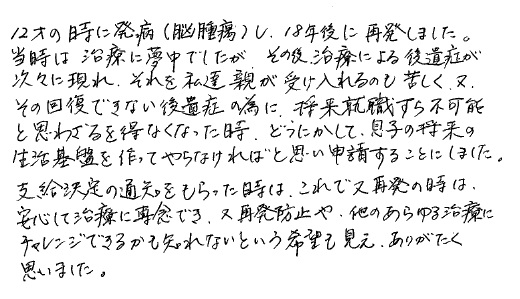 12才の時に発病（脳腫瘍）し、18年後に再発しました。
当時は治療に夢中でしたが、その後治療による後遺症が
次々に現れ、それを私達親が受け入れるのも苦しく、又
その回復できない後遺症の為に、将来就職すら不可能
と思わざるを得なくなった時、どうにかして、息子の将来の
生活基盤を作ってやらなければと思い申請することにしました。
支給決定の通知をもらった時は、これで又再発の時は、
安心して治療に専念でき、又再発防止や、他のあらゆる治療に
チャレンジできるかも知れないという希望も見え、ありがたく
思いました。